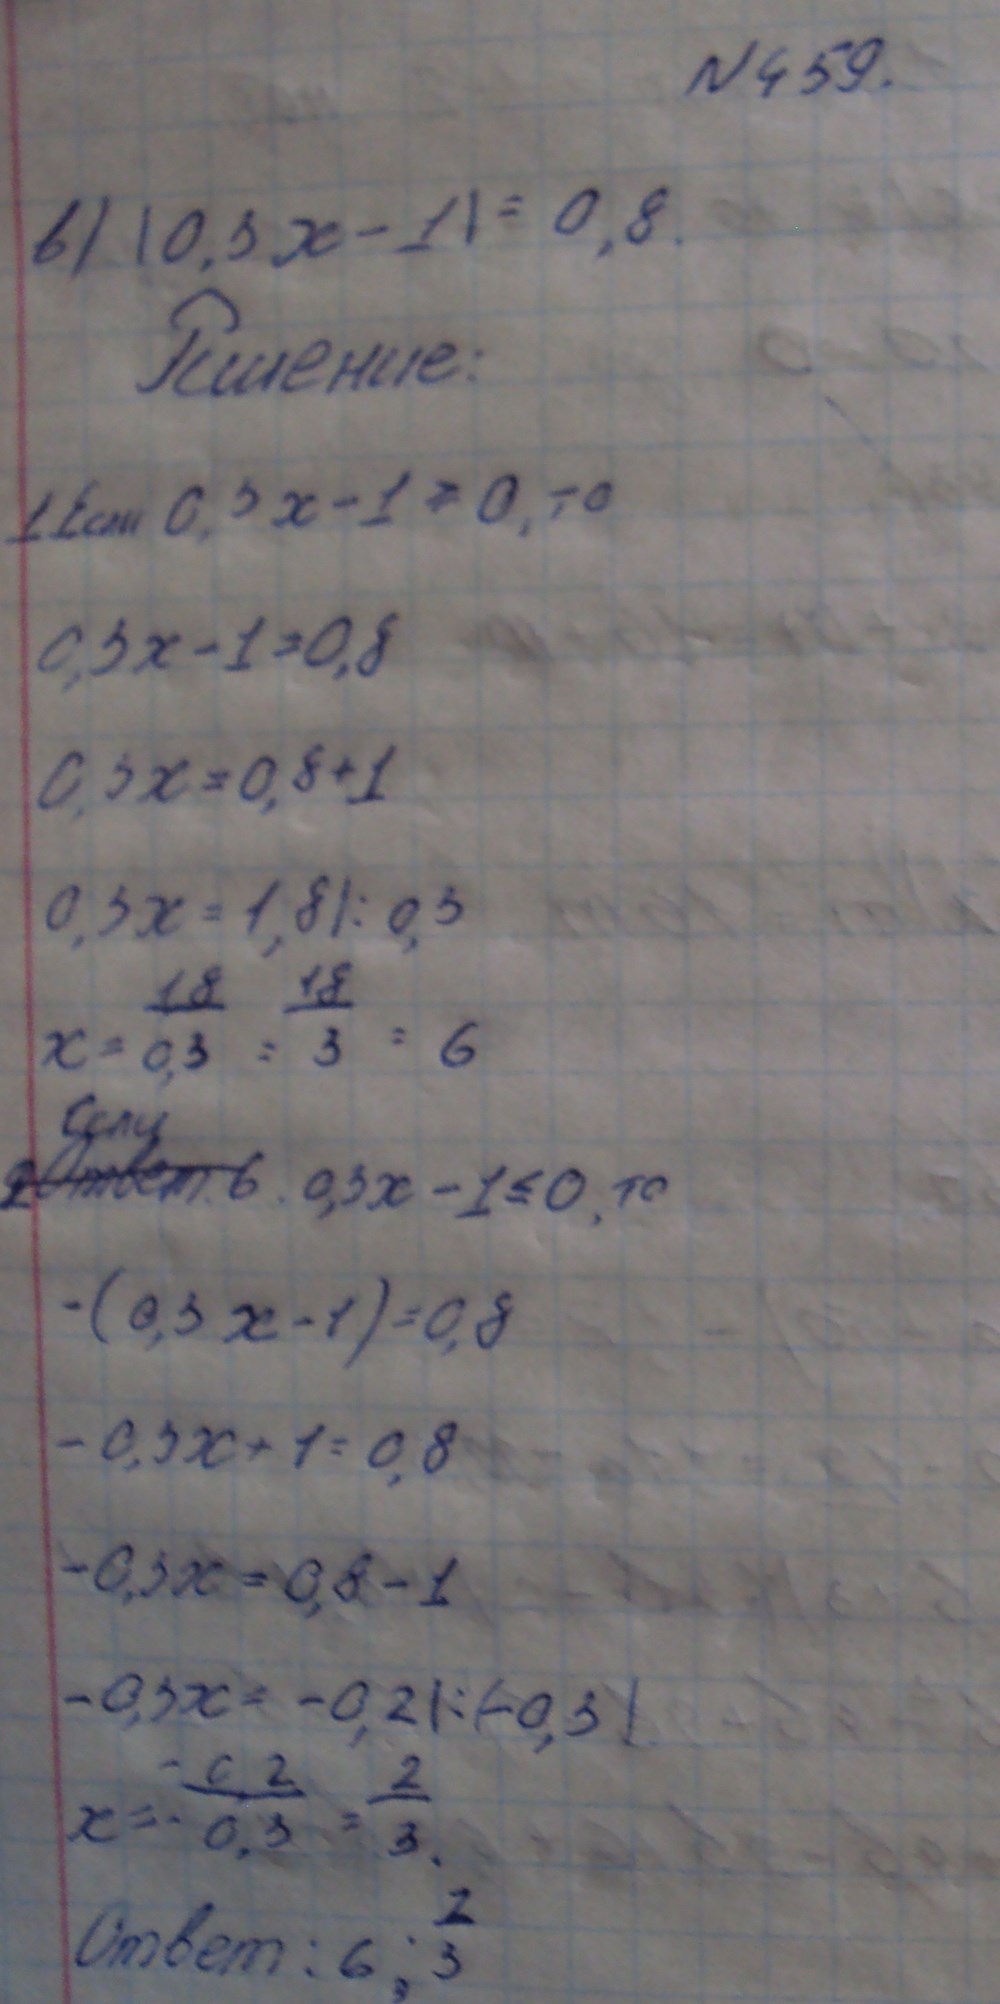 N459.
в) |0,3x - 1| = 0,8.
Решение:
1 Если 0,3x - 1 ≥ 0, то
0,3x - 1 = 0,8
0,3x = 0,8 + 1
0,3x = 1,8 |: 0,3
x = 1,8/0,3 = 18/3 = 6
Если
2 Ответ 6. 0,3x - 1 ≤ 0, то
-(0,3x - 1) = 0,8
-0,3x + 1 = 0,8
-0,3x = 0,8 - 1
-0,3x = -0,2 |: (-0,3)
x = -0,2/-0,3 = 2/3.
Ответ: 6; 2/3